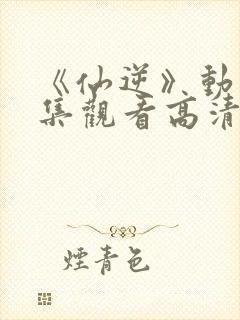 《仙逆》動
集觀看高清
煙青色